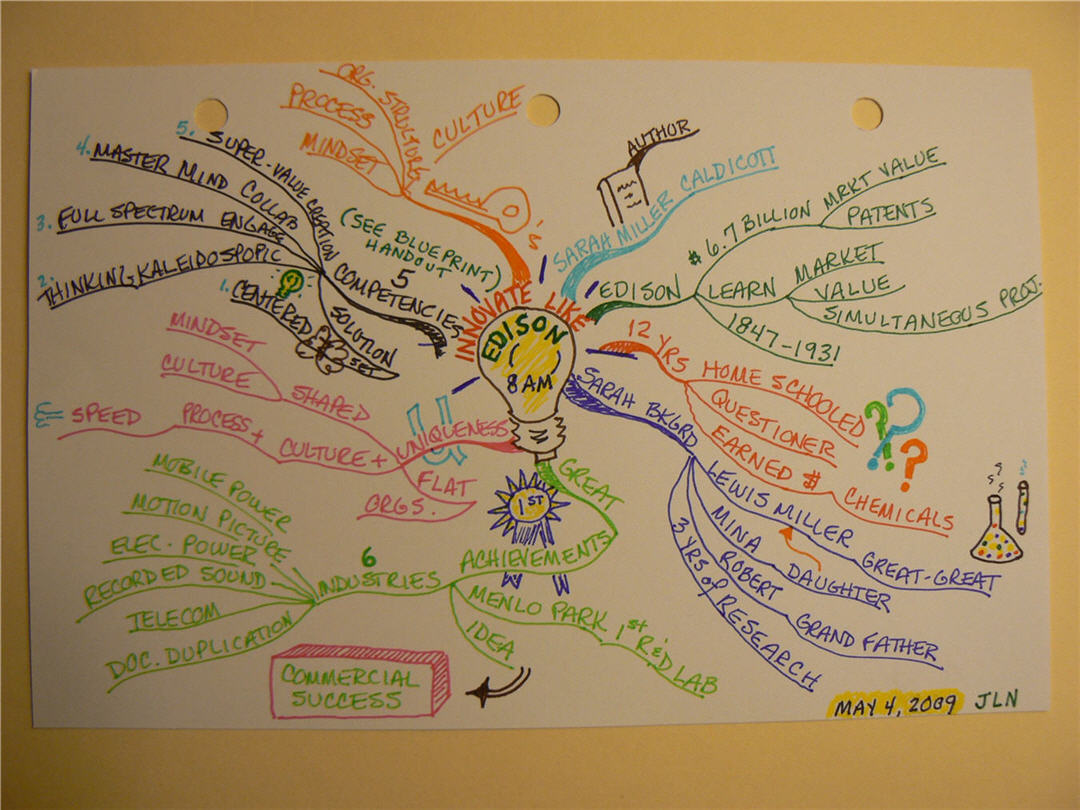 INNOVATE LIKE
EDISON
8 AM
AUTHOR
SARAH MILLER CALDICOTT
EDISON
$6.7 BILLION MRKT VALUE
PATENTS
LEARN
MARKET
VALUE
SIMULTANEOUS PROJ.
1847-1931
12 YRS
HOME SCHOOLED
QUESTIONER
EARNED $
CHEMICALS
???
SARAH BKGRD
LEWIS MILLER GREAT-GREAT
MINA DAUGHTER
ROBERT GRAND FATHER
3 YRS of RESEARCH
GREAT
ACHIEVEMENTS
1ST
MENLO PARK 1st R&D LAB
IDEA
COMMERCIAL
SUCCESS
6
INDUSTRIES
MOBILE POWER
MOTION PICTURE
ELEC. POWER
RECORDED SOUND
TELECOM
DOC. DUPLICATION
UNIQUENESS
U
SHAPED
MINDSET
CULTURE
CULTURE +
PROCESS +
SPEED
FLAT
ORGS.
5
COMPETENCIES
(SEE BLUEPRINT)
HANDOUT
1. CENTERED
SOLUTION
SET
2. THINKING KALEIDOSPOPIC
3. FULL SPECTRUM ENGAGE
4. MASTER MIND COLLAB
5. SUPER-VALUE CREATION
ORG. STRUCTURE
PROCESS
MINDSET
CULTURE
'S
MAY 4, 2009
JLN